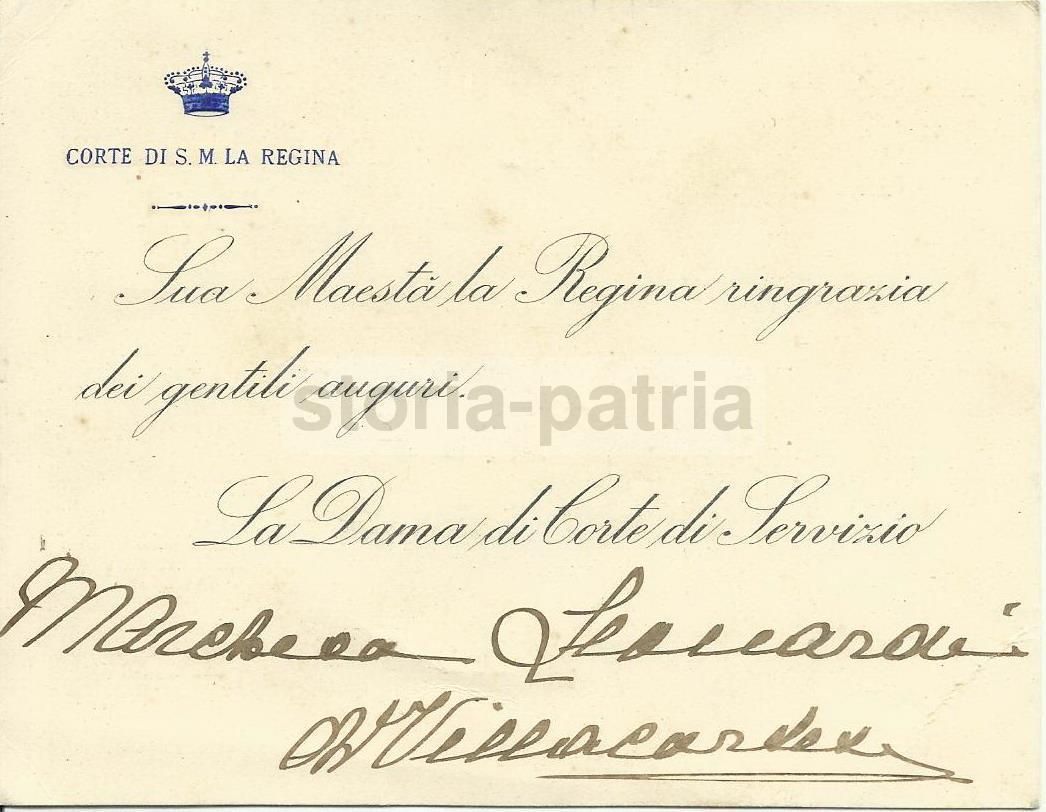 CORTE DI S. M. LA REGINA
Sua Maestà la Regina ringrazia
dei gentili auguri.
storia-patria
La Dama di Corte di Servizio
Marchesa
di Villacortese